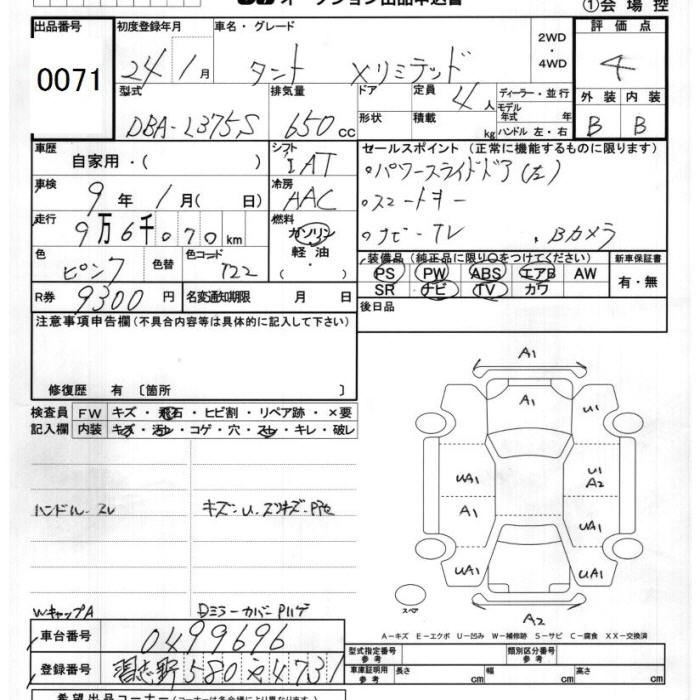 オークション出品申込書
①会場控
出品番号 初度登録年月 車名・グレード 2WD・4WD 評価点
0071 24年1月 タント Xリミテッド 4
型式 排気量 ドア 定員 4人 ディーラー・並行 外装 内装
DBA-L375S 650cc 形状 積載 kg モデル年式 年 ハンドル 左・右 B B
車歴 自家用・( ) シフト IAT セールスポイント (正常に機能するものに限ります)
車検 9年1月( 日) 冷房 AAC ・パワースライドドア(左)
・スマートキー
走行 9万6千070km 燃料 ガソリン・軽油・( ) ・ナビ・TV ・Bカメラ
色 ピンク 色替 色コード T22 装備品 (純正品に限り○をつけてください) 新車保証書
PS PW ABS エアB AW 有・無
R券 9300円 名変通知期限 月 日 SR ナビ TV カワ
注意事項申告欄 (不具合内容等は具体的に記入して下さい) 後日品
修復歴 有 〔箇所 〕
検査員 FW キズ・飛石・ヒビ割・リペア跡・×要
記入欄 内装 キズ・汚レ・コゲ・穴・スレ・キレ・破レ
A1
A1 U1
UA1 U1 A2
A1 UA1
UA1 UA1
スペア A2
ハンドル スレ キズ・U・スリキズ・P色
WキャップA DミラーカバーPハゲ
A-キズ E-エクボ U-凹み W-補修跡 S-サビ C-腐食 XX-交換済
車台番号 0499696
型式指定番号 参考 類別区分番号 参考
登録番号 習志野580 4731
車庫証明用 参考 長さ cm 幅 cm 高さ cm
希望出品コーナー